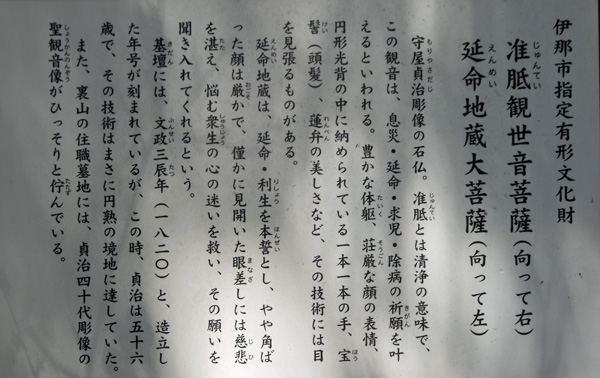 伊那市指定有形文化財
准胝観世音菩薩(向って右)
延命地蔵大菩薩(向って左)
守屋貞治彫像の石仏。准胝とは清浄の意味で、
この観音は、息災・延命・求児・除病の祈願を叶
えるといわれる。豊かな体躯、荘厳な顔の表情、
円形光背の中に納められている一本一本の手、宝
髻(頭髪)、蓮弁の美しさなど、その技術には目
を見張るものがある。
延命地蔵は、延命・利生を本誓とし、やや角ば
った顔は厳かで、僅かに見開いた眼差しには慈悲
を湛え、悩む衆生の心の迷いを救い、その願いを
聞き入れてくれるという。
基壇には、文政三辰年(一八二〇)と、造立し
た年号が刻まれているが、この時、貞治は五十六
歳で、その技術はまさに円熟の境地に達していた。
また、裏山の住職墓地には、貞治四十代彫像の
聖観音像がひっそりと佇んでいる。